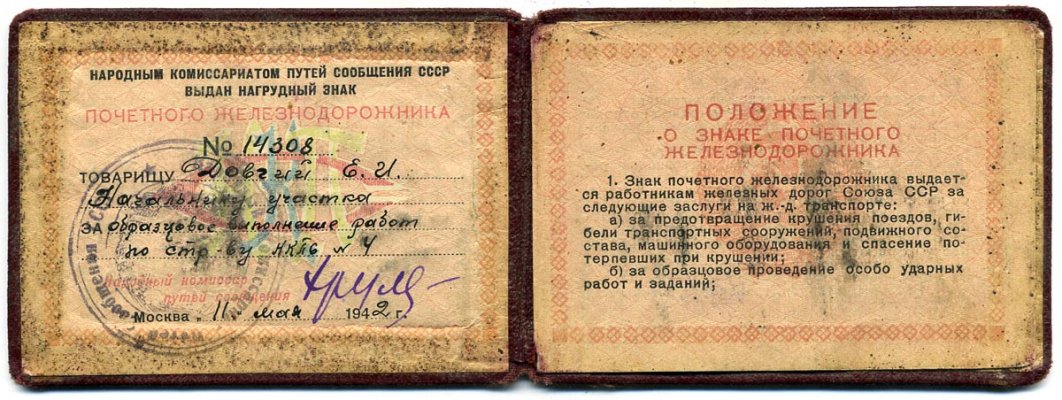 НАРОДНЫМ КОМИССАРИАТОМ ПУТЕЙ СООБЩЕНИЯ СССР
ВЫДАН НАГРУДНЫЙ ЗНАК
ПОЧЕТНОГО ЖЕЛЕЗНОДОРОЖНИКА
№ 14308
ТОВАРИЩУ Довгий Е. И.
Начальнику участка
ЗА образцовое выполнение работ
по стр-ву НКПС № 4
Народный комиссар
путей сообщения
Москва „ 11 " мая 1942 г.
ПОЛОЖЕНИЕ
О ЗНАКЕ ПОЧЕТНОГО
ЖЕЛЕЗНОДОРОЖНИКА
1. Знак почетного железнодорожника выдает-
ся работникам железных дорог Союза ССР за
следующие заслуги на ж.-д. транспорте:
а) за предотвращение крушения поездов, ги-
бели транспортных сооружений, подвижного со-
става, машинного оборудования и спасение по-
терпевших при крушении;
б) за образцовое проведение особо ударных
работ и заданий;